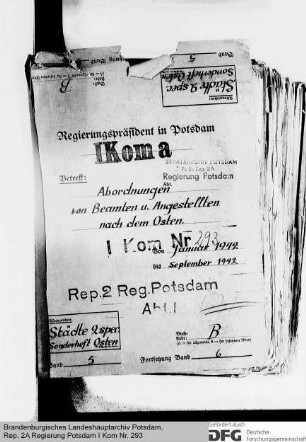 5 Band
B
Städte 2 spez.
Sonderheft Osten
Regierungspräsident in Potsdam
I Kom a
STAATSARCHIV POTSDAM
Pr. Br. Rep. 2A
Regierung Potsdam
Abt.
Betreff:
Abordnungen
von Beamten u. Angestellten
nach dem Osten.
I Kom Nr 293
von Januar 1942
bis September 1942
Rep. 2 Reg. Potsdam
Abt. I
Städte 2 spez.
Sonderheft Osten
B
Band 5
Fortsetzung Band 6
Brandenburgisches Landeshauptarchiv Potsdam,
Rep. 2A Regierung Potsdam I Kom Nr. 293
Gefördert durch
DFG Deutsche
Forschungsgemeinschaft